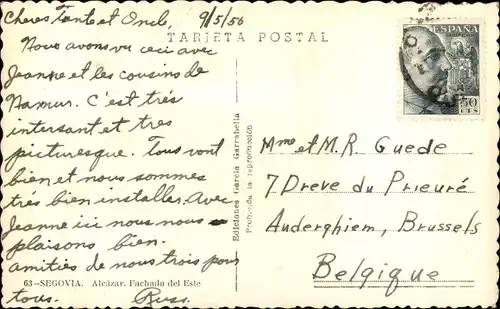 Cheres Tante et Oncle, 9/5/50
TARJETA POSTAL
Nous avons vu ceci avec
Jeanne et les cousins de
Namur. C'est trés
intersant et tres
picturesque. Tous vont
bien et nous sommes
trés bien installer. Avec
Jeanne ici nous nous
plaisons bien.
amitiés de nous trois pour
tous. Russ.
63-SEGOVIA. Alcázar. Fachada del Este
Ediciones García Garrabella
Prohibida la reproducción
ESPAÑA
50
CTS
Mme et M. R. Guede
7 Dreve du Prieuré
Auderghiem, Brussels
Belgique